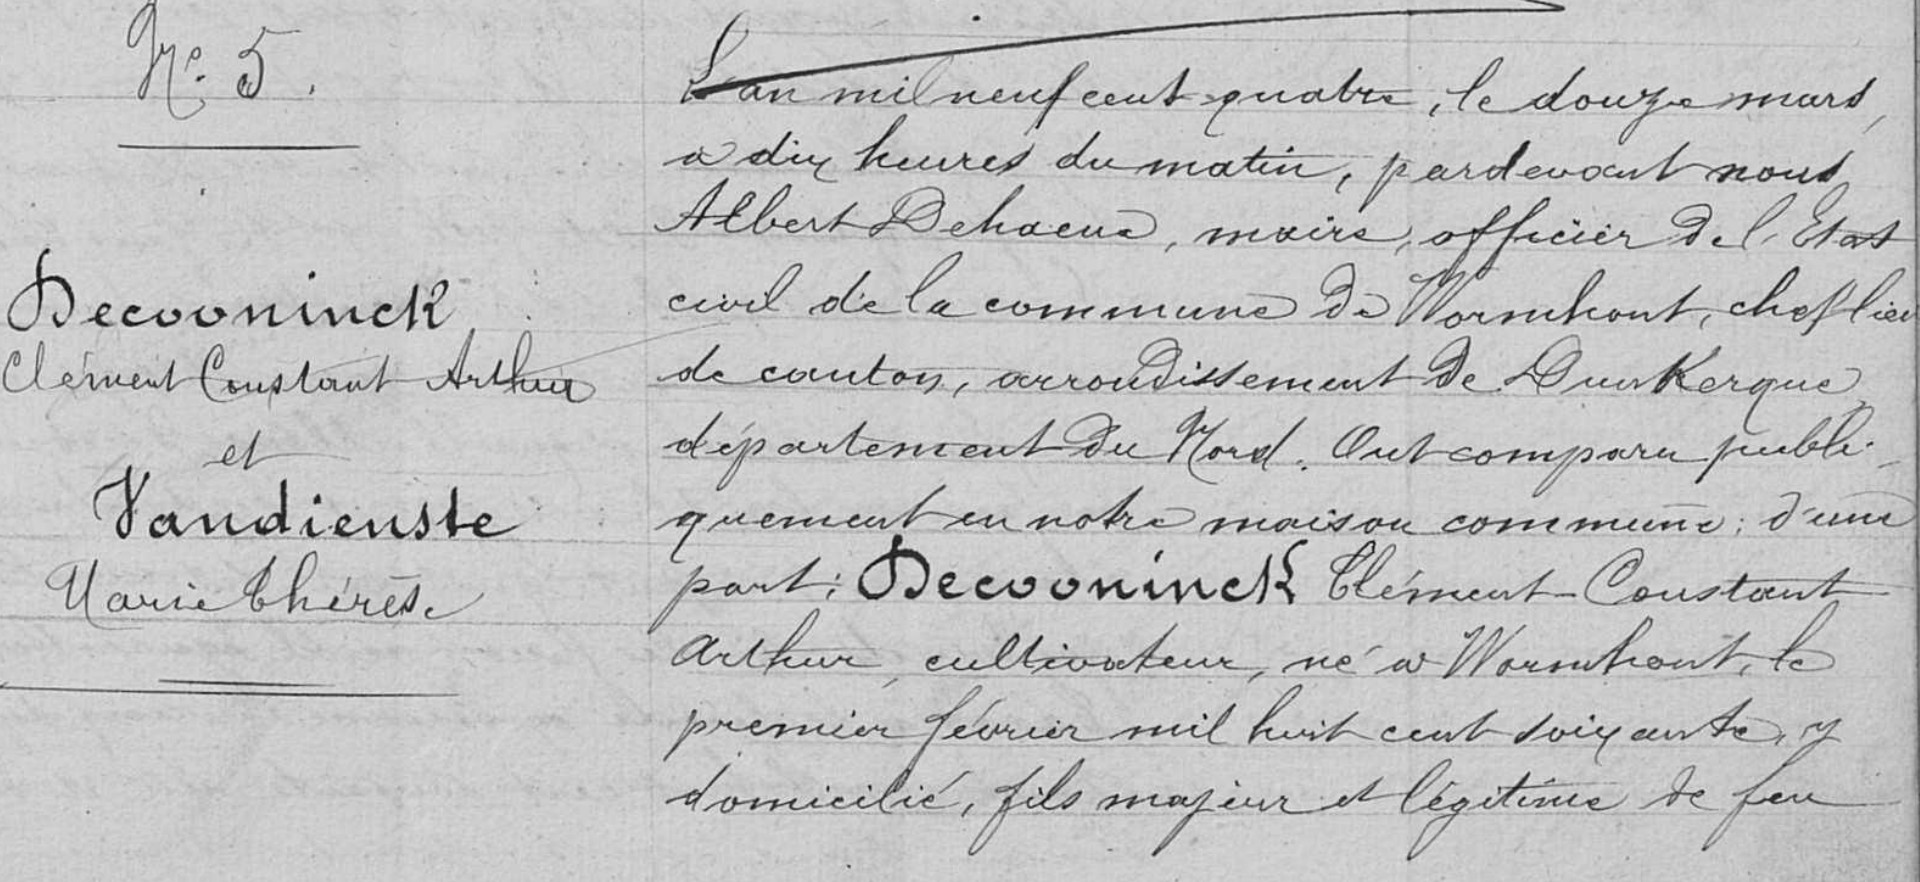 No. 5.
Decooninck
Clément Constant Arthur
et
Vandienste
Marie Thérèse
L'an mil neuf cent quatre, le douze mars,
à dix heures du matin, pardevant nous
Albert Dehaene, maire, officier de l'Etat
civil de la commune de Wormhout, chef lieu
de canton, arrondissement de Dunkerque,
département du Nord. Ont comparu publi-
quement en notre maison commune: d'une
part: Decooninck Clément Constant
Arthur, cultivateur, né à Wormhout, le
premier février mil huit cent soixante, y
domicilié, fils majeur et légitime de feu